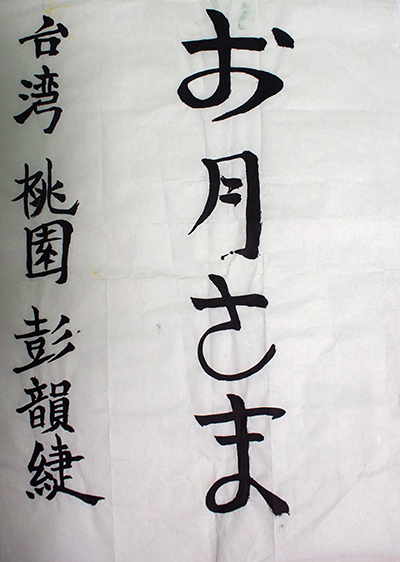 お月さま
台湾 桃園 彭韻緁